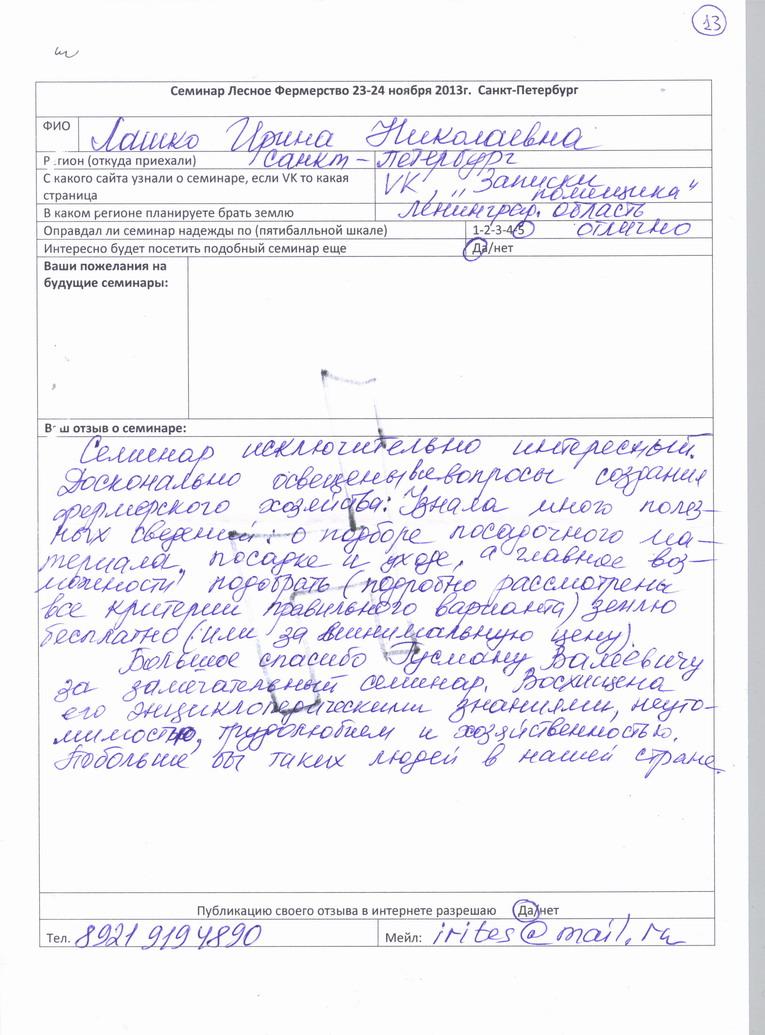 13
Семинар Лесное Фермерство 23-24 ноября 2013г. Санкт-Петербург
ФИО Лашко Ирина Николаевна
Регион (откуда приехали) Санкт-Петербург
С какого сайта узнали о семинаре, если VK то какая
страница VK, „Записки помещика"
В каком регионе планируете брать землю Ленинград. область
Оправдал ли семинар надежды по (пятибалльной шкале) 1-2-3-4-5 отлично
Интересно будет посетить подобный семинар еще Да/нет
Ваши пожелания на
будущие семинары:
Ваш отзыв о семинаре:
Семинар исключительно интересный.
Досконально освещены все вопросы создания
фермерского хозяйства. Узнала много полез-
ных сведений: о подборе посадочного ма-
териала, посадке и уходе, а главное воз-
можности подобрать (подробно рассмотрены
все критерии правильного варианта) землю
бесплатно (или за минимальную цену).
Большое спасибо Гусману Валеевичу
за замечательный семинар. Восхищена
его энциклопедическими знаниями, неуто-
мимостью, трудолюбием и хозяйственностью.
Побольше бы таких людей в нашей стране.
Публикацию своего отзыва в интернете разрешаю Да/нет
Тел. 8921 919 4890 Мейл: irites@mail.ru